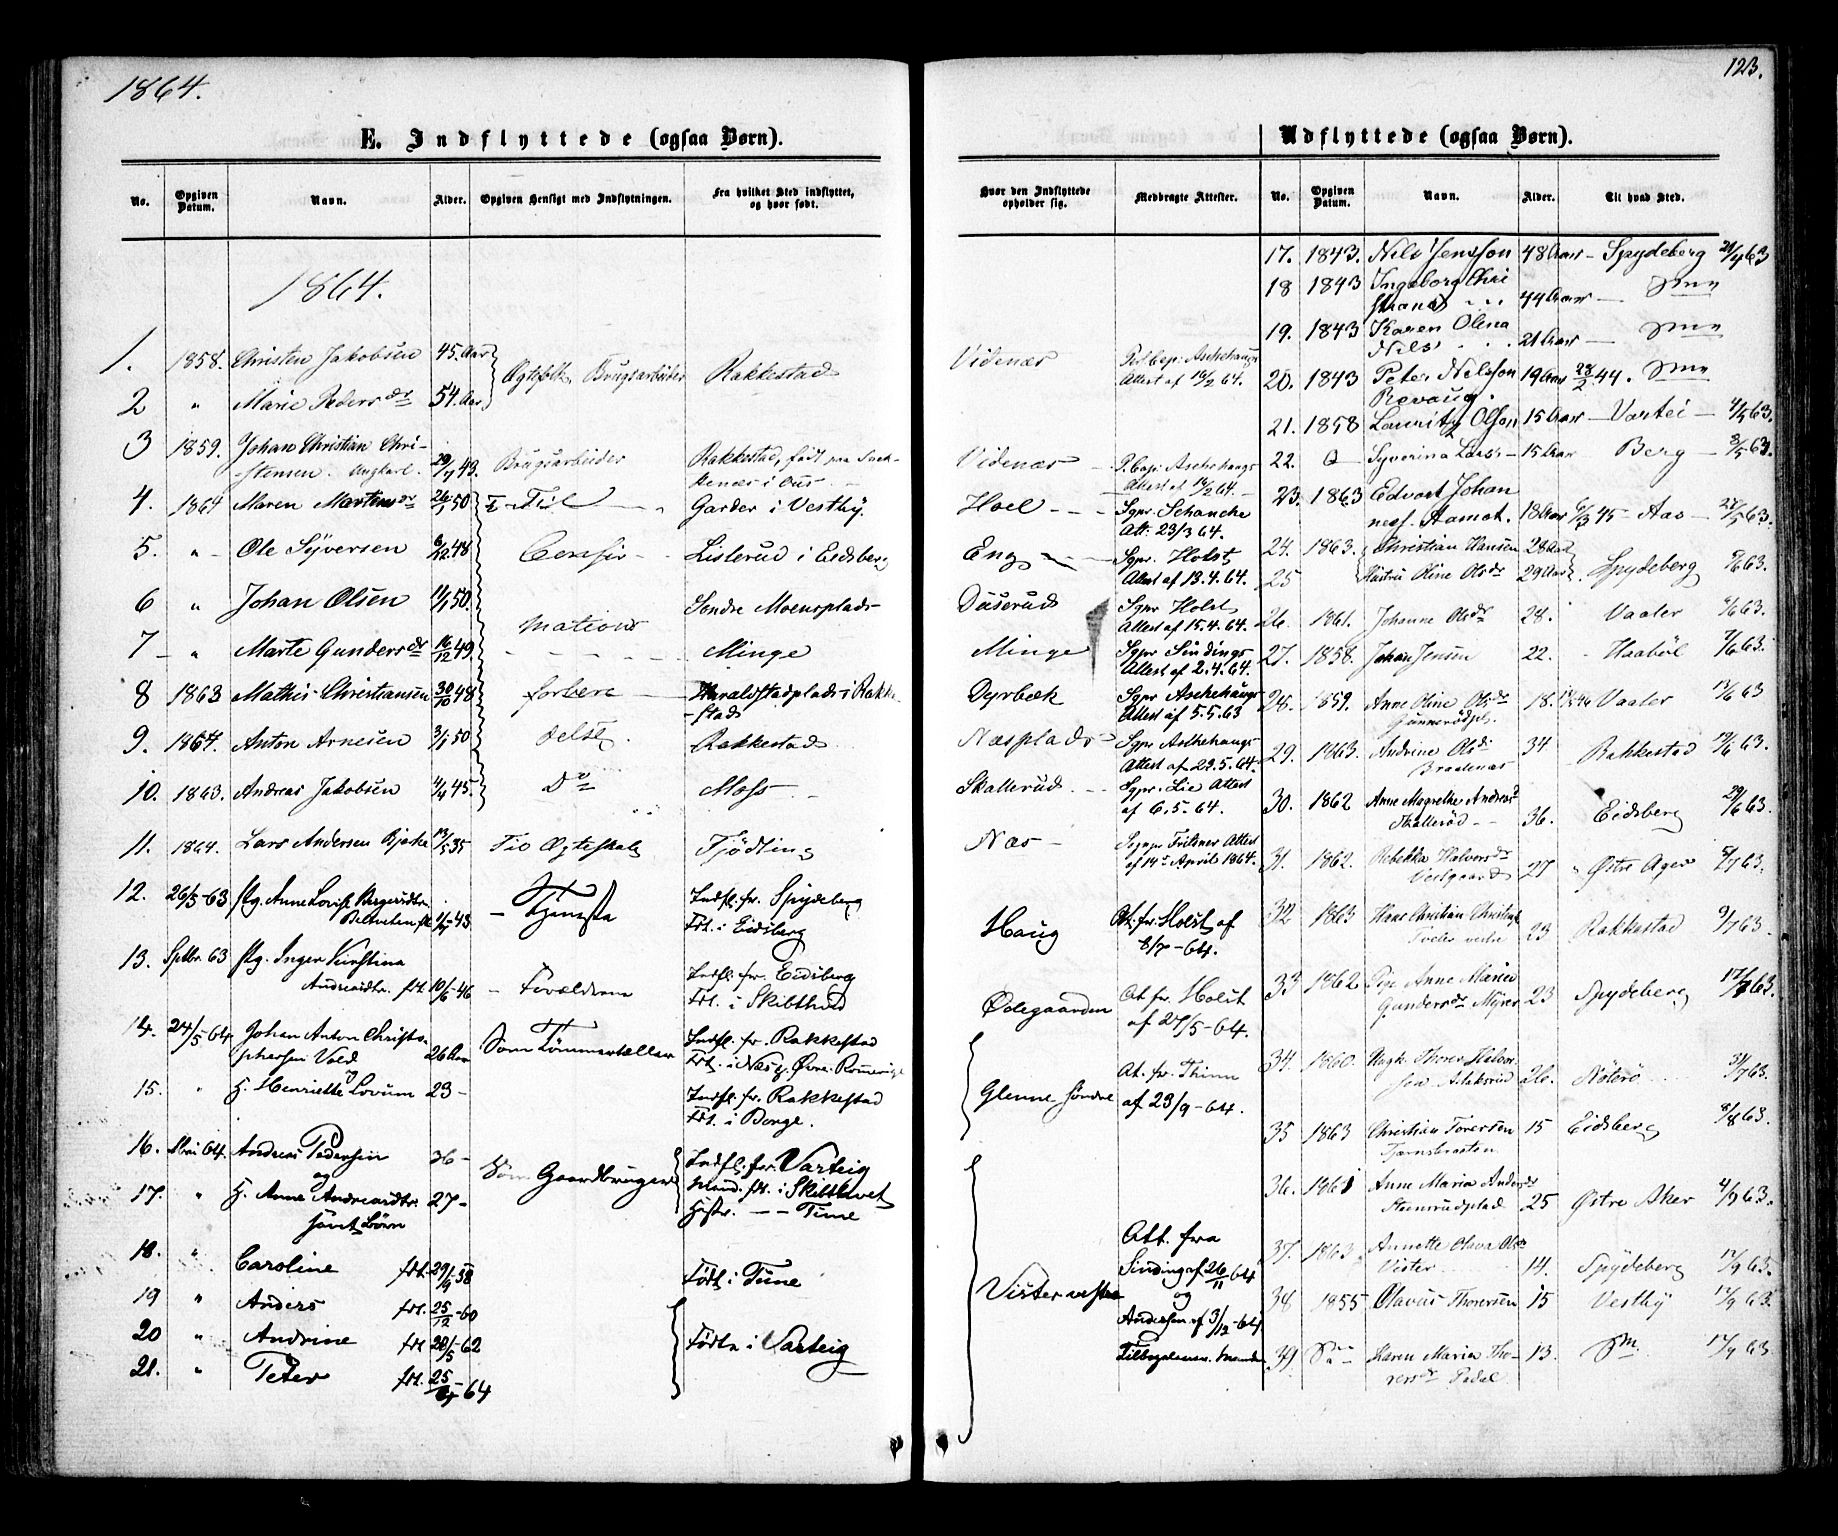 1864.
123.
E. Indflyttede (ogsaa Børn).
No.
Opgiven Datum.
Navn.
Alder.
Opgiven Hensigt med Indflytningen.
Fra hvilket Sted indflyttet, og hvor født.
Hvor den Indflyttede opholder sig.
Medbragte Attester.
1864.
1. 1858. Christen Jakobsen 45. Aar Ægtefolk, Brugsarbeider Rakkestad Videnæs
Attest af 14/2 64.
2 " Marie Pedersdr 54. Aar
3 1859. Johan Christian Chri-
stensen. Ungkarl. 29/7 43. Brugsarbeider Rakkestad, født paa
i Ous Videnæs P. Cap: Aschehougs
Attest af 14/2 64.
4. 1864 Maren Martensdr 26/1 50 Til Garder i Vestby. Hoel Sgpr. Schanche
Att: 23/3 64.
5. " Ole Syversen 48 Confir- Listerud i Eidsberg Eng Sgpr. Holst
Attest af 13.4.64.
6 " Johan Olsen 11/1 50. mations Søndre Moensplads Duserud Sgpr Holst
Attest af 15.4.64.
7 " Marte Gundersdr 16/12 49. Minge Minge Sgpr Sindings
Attest af 2.4.64.
8 1863 Mathis Christiansen 30/10 48 forbere Haraldstadplads i Rakke-
stad Dyrbæk Sgpr Aschehougs
Attest af 5.5.63
9. 1864. Anton Arnesen 3/1 50 delse. Rakkestad Næsplads Sgpr Aschehougs
Attest af 29.5.64.
10. 1863. Andreas Jakobsen 4/4 45. Do Moss Skallerud Sgpr. Lie Attest
af 6.5.64.
11. 1864. Lars Andersen Bjerke 13/5 35 Til Ægteskab Fjødling Næs Sognpr Frisner Attest
af 14de April 1864.
12. 26/3-63 Pig. Anne Lovise
43 Tjeneste Indfl. fr. Spydeberg
Fdt. i Eidsberg Haug At. fr. Holst af
13. Septbr. 63 Pig. Inger Kirstina
Andreasdtr. fdt. 10/6-46 Forældrene Indfl. fr. Eidsberg
Fdt. i Skibthved Ødegaarden At. fr. Holst
af 27/5-64.
14. 24/5-64 Johan Anton Christo-
phersen Vold 26 Aar Som Tømmerfæller Indfl. fr. Rakkestad
Fdt. i Næs, Øvre Romerige Glenne søndre At. fr. Thinn
af 23/9-64.
og
15. " H. Henriette Lovum 23- Indfl. fr. Rakkestad
Fdt. i Borge.
16. Mai 64. Andreas Pedersen 36- Som Gaardbruger Indfl. fr. Varteig
Mand. fdt. i Skibthvet
Hustr. -- Tune
og
17. " H. Anne Andreasdtr. 27-
samt Børn
18. " Caroline fdt. 29/9-58 Født i Tune Vister vestre Att. fra
Sinding af 26/11 64
og
Andersen af 3/12-64
19 " Anders fdt. 25/12-60
20 " Andrine fdt 28/5-62 Født i Varteig
21. " Peter fdt. 64
Udflyttede (ogsaa Børn).
No.
Opgiven Datum.
Navn.
Alder.
Til hvad Sted.
17. 1843. Nils Jensson 48 Aar - Spydeberg 63
18 1843 Ingeborg Chri
44 Aar
19. 1843 Karen Olina
Nils 21 Aar
20. 1843 Peter Nilsson
Revaug. 19 Aar 28/2 44.
21. 1858 Lauritz Olsen 15 Aar - Vartei - 4/5 63.
22. Syverina Lars - 15 Aar Berg - 8/5 63.
23. 1863 Edvart Johan
nes. Aamot. 18 Aar 6/3 45 - Aas - 28/5 63.
24. 1863. Christian Hansen 28 Aar
25 Hustru Oline Olsdr 29 Aar Spydeberg 63.
26. 1861. Johanne Olsdr 28. Vaaler 63.
27. 1858. Johan Jensen 22. Haabøl 63.
28. 1859. Anne Oline Olsdr
Gunnerødpl. 18. Vaaler 13/6 63
29. 1863. Andrine Olsdr
Braatenæs 34 Rakkestad 63.
30. 1862 Anne Magrethe Andersdr
Skallerød 36. Eidsberg 29/6 63.
31. 1862. Rebekka Halvorsdr
Vestgaard 27 Østre Ager 63.
32 1863 Hans Christian Christians
Tveter vestre 23 Rakkestad 9/7 63.
33 1862 Pige Anne Maria
Gundersdr Myrer 23 Spydeberg 17/7 63.
34. 1860. Ungk. Thorer
26. Nøterø 31/7 63.
35 1863 Christian Torersen
Tjernsbraaten 15 Eidsberg 8/8 63.
36. 1861 Anne Maria Andersdr
Steensrudplad 25 Østre Aker 4/9 63.
37. 1863. Annette Olava Olsdr
Vister 14. Spydeberg 63.
38 1855 Olavus Thorersen 15 Vestby 63.
39 Karen Maria Tho-
rersdr 13. 63